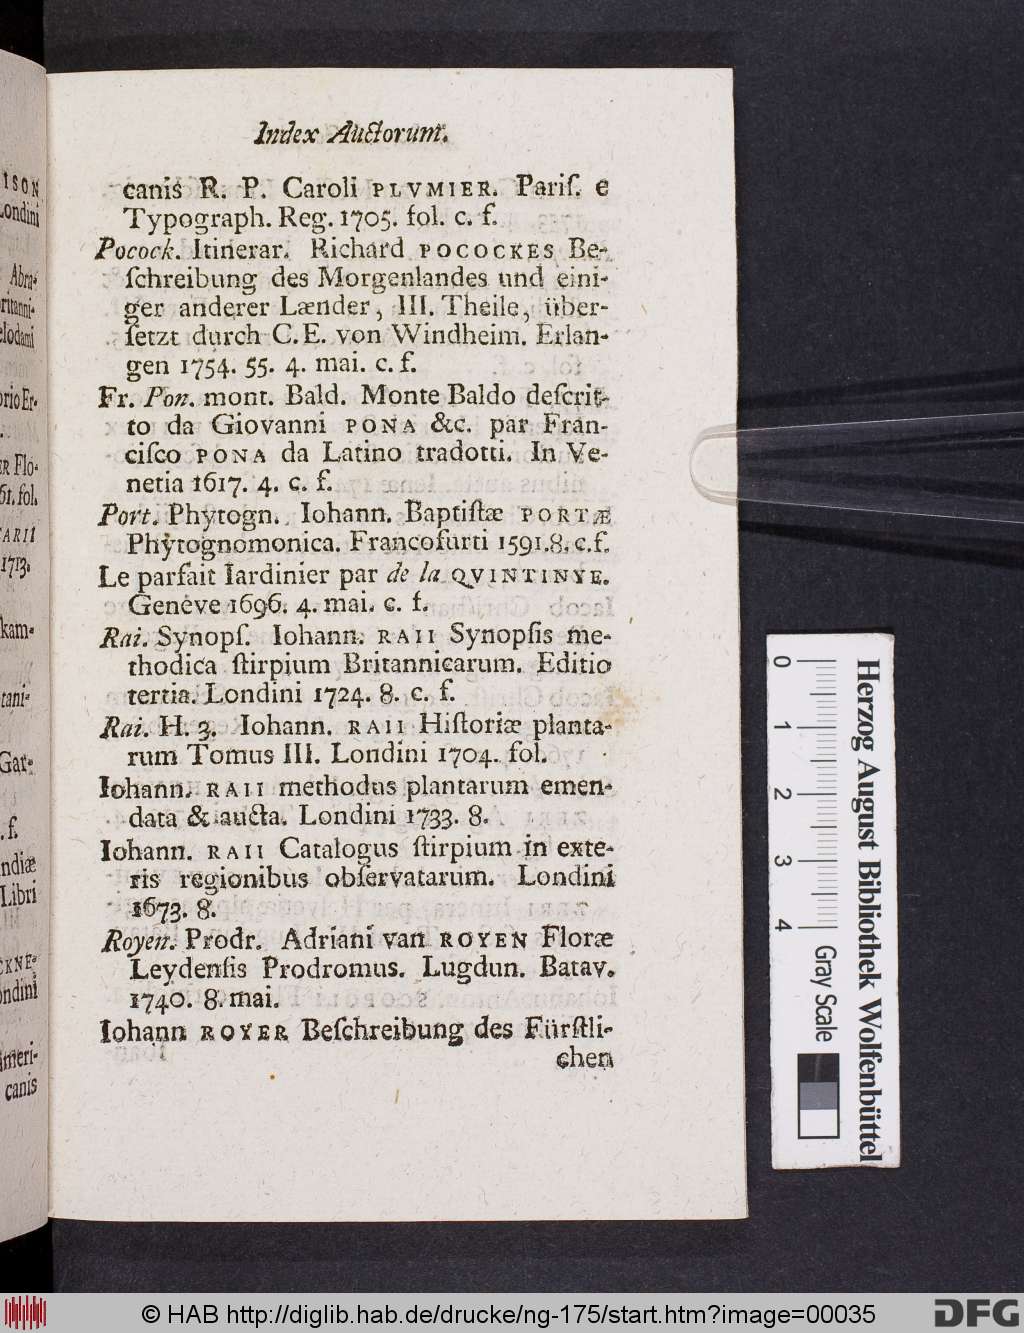 Index Auctorum.
canis R. P. Caroli PLVMIER. Pariſ. e
Typograph. Reg. 1705. fol. c. f.
Pocock. Itinerar. Richard POCOCKES Be-
ſchreibung des Morgenlandes und eini-
ger anderer Lænder, III. Theile, über-
ſetzt durch C. E. von Windheim. Erlan-
gen 1754. 55. 4. mai. c. f.
Fr. Pon. mont. Bald. Monte Baldo deſcrit-
to da Giovanni PONA &c. par Fran-
ciſco PONA da Latino tradotti. In Ve-
netia 1617. 4. c. f.
Port. Phytogn. Iohann. Baptiſtæ PORTÆ
Phytognomonica. Francofurti 1591. 8. c. f.
Le parfait Iardinier par de la QVINTINYE.
Genéve 1696. 4. mai. c. f.
Rai. Synopſ. Iohann. RAII Synopſis me-
thodica ſtirpium Britannicarum. Editio
tertia. Londini 1724. 8. c. f.
Rai. H. 3. Iohann. RAII Hiſtoriæ planta-
rum Tomus III. Londini 1704. fol.
Iohann. RAII methodus plantarum emen-
data & aucta. Londini 1733. 8.
Iohann. RAII Catalogus ſtirpium in exte-
ris regionibus obſervatarum. Londini
1673. 8.
Royen. Prodr. Adriani van ROYEN Floræ
Leydenſis Prodromus. Lugdun. Batav.
1740. 8. mai.
Iohann ROYER Beſchreibung des Fürſtli-
chen
ISON
Londini
Abra-
ritanni-
elodami
orio Er-
ER Flo-
61. fol.
CARII
1713.
kam-
tani-
Gar-
. f.
ndiæ
Libri
CKNE-
ondini
meri-
canis
0 1 2 3 4
Gray Scale
Herzog August Bibliothek Wolfenbüttel
© HAB http://diglib.hab.de/drucke/ng-175/start.htm?image=00035
DFG